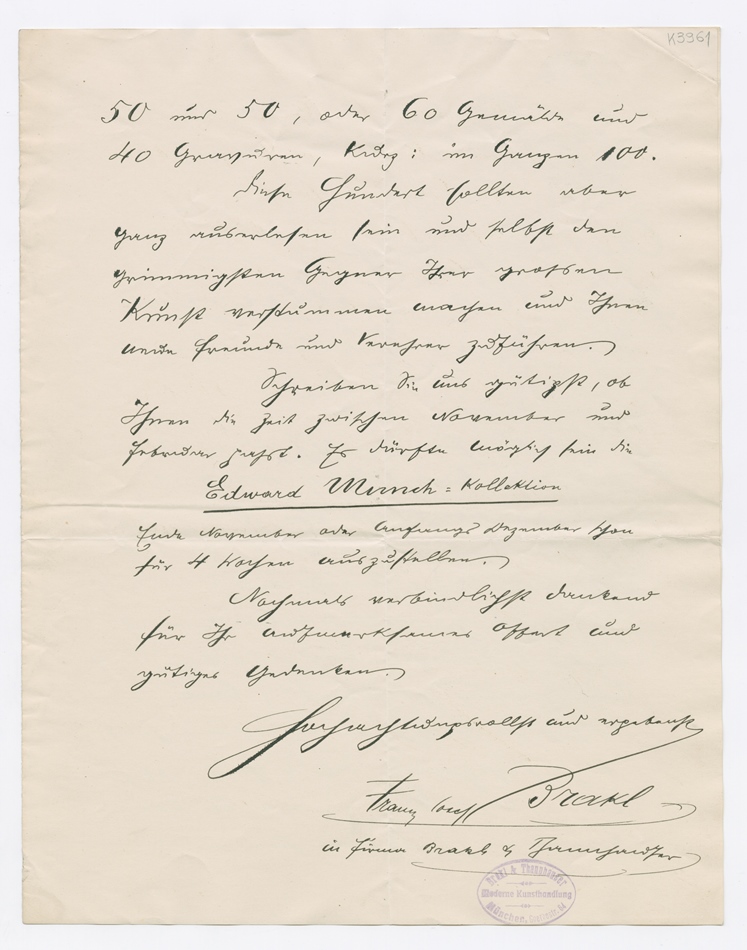 K3961
50 und 50, oder 60 Gemälde und
40 Gravuren, kurz: im Ganzen 100.
Diese Hundert sollten aber
ganz auserlesen sein und selbst den
grimmigsten Gegner Ihrer grossen
Kunst verstummen machen und Ihnen
neue Freunde und Verehrer zuführen.
Schreiben Sie uns gütigst, ob
Ihnen die Zeit zwischen November und
Februar passt. Es dürfte möglich sein die
Edward Munch = Kollektion
Ende November oder Anfangs Dezember schon
für 4 Wochen auszustellen.
Nochmals verbindlichst dankend
für Ihr aufmerksames Offert und
gütiges Gedenken.
Hochachtungsvollst und ergebenst
Franz Josef Brakl
in Firma Brakl & Thannhauser
Brakl & Thannhauser
Moderne Kunsthandlung
München,